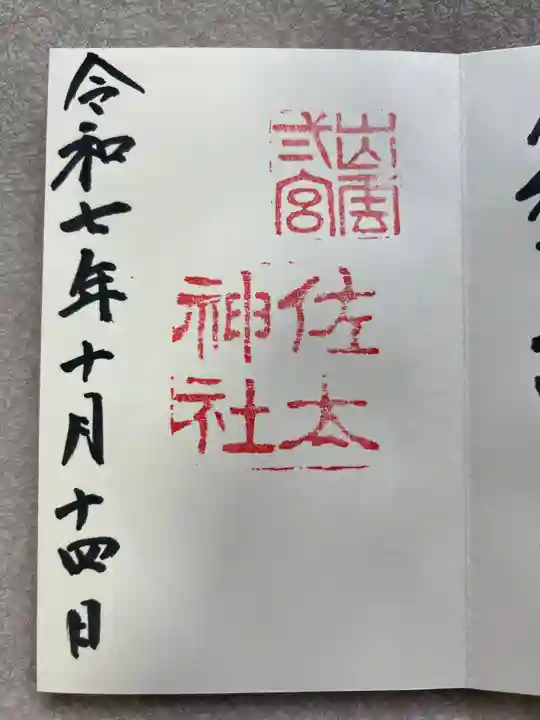 出雲
弍宮
佐太
神社
令和七年十月十四日